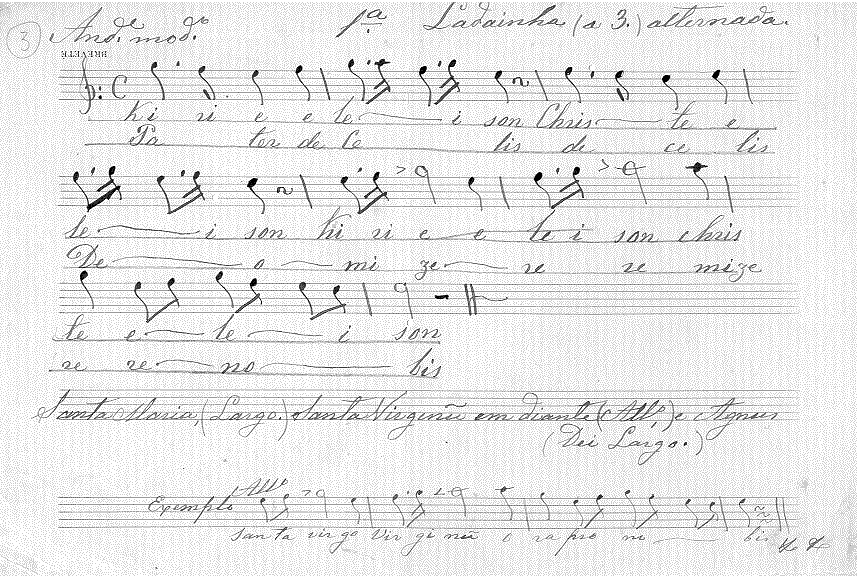 3 And.e mod.o 1.a Ladainha (a 3.) alternada.
BREVETÉ
C
Ki ri e e le i son Chris te e
Pa ter de Ce lis de ce lis
le i son Ki ri e e le i son chris
De o mi ze re re mize
te e le i son
re re no bis
Santa Maria, (Largo.) Santa Virgenũ em diante (All.o) e Agnus
(Dei Largo.)
Exemplo All.o
San ta virgo Vir gi nũ o ra pro no bis